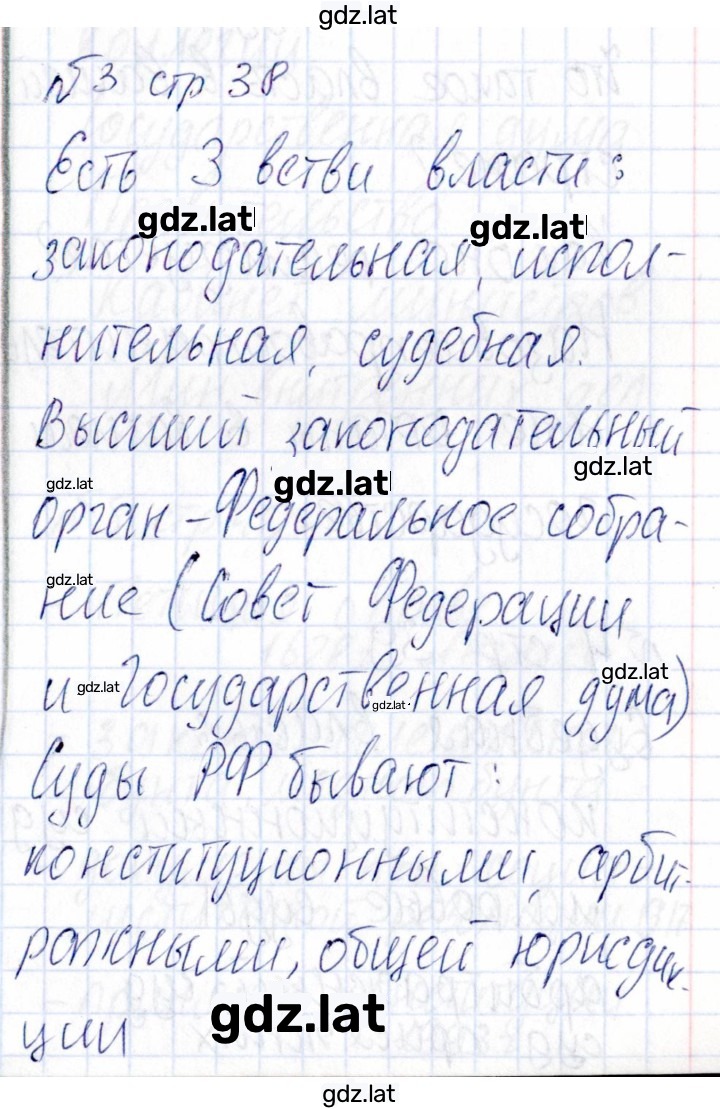 gdz.lat
№3 стр 38
Есть 3 ветви власти:
gdz.lat gdz.lat
законодательная, испол-
нительная, судебная.
Высший законодательный
gdz.lat gdz.lat gdz.lat
орган - Федеральное собра-
gdz.lat
ние (Совет Федерации
gdz.lat
и gdz.lat Государственная дума)
gdz.lat
Суды РФ бывают:
конституционными, арбит-
ражными, общей юрисдик-
gdz.lat
ции
gdz.lat